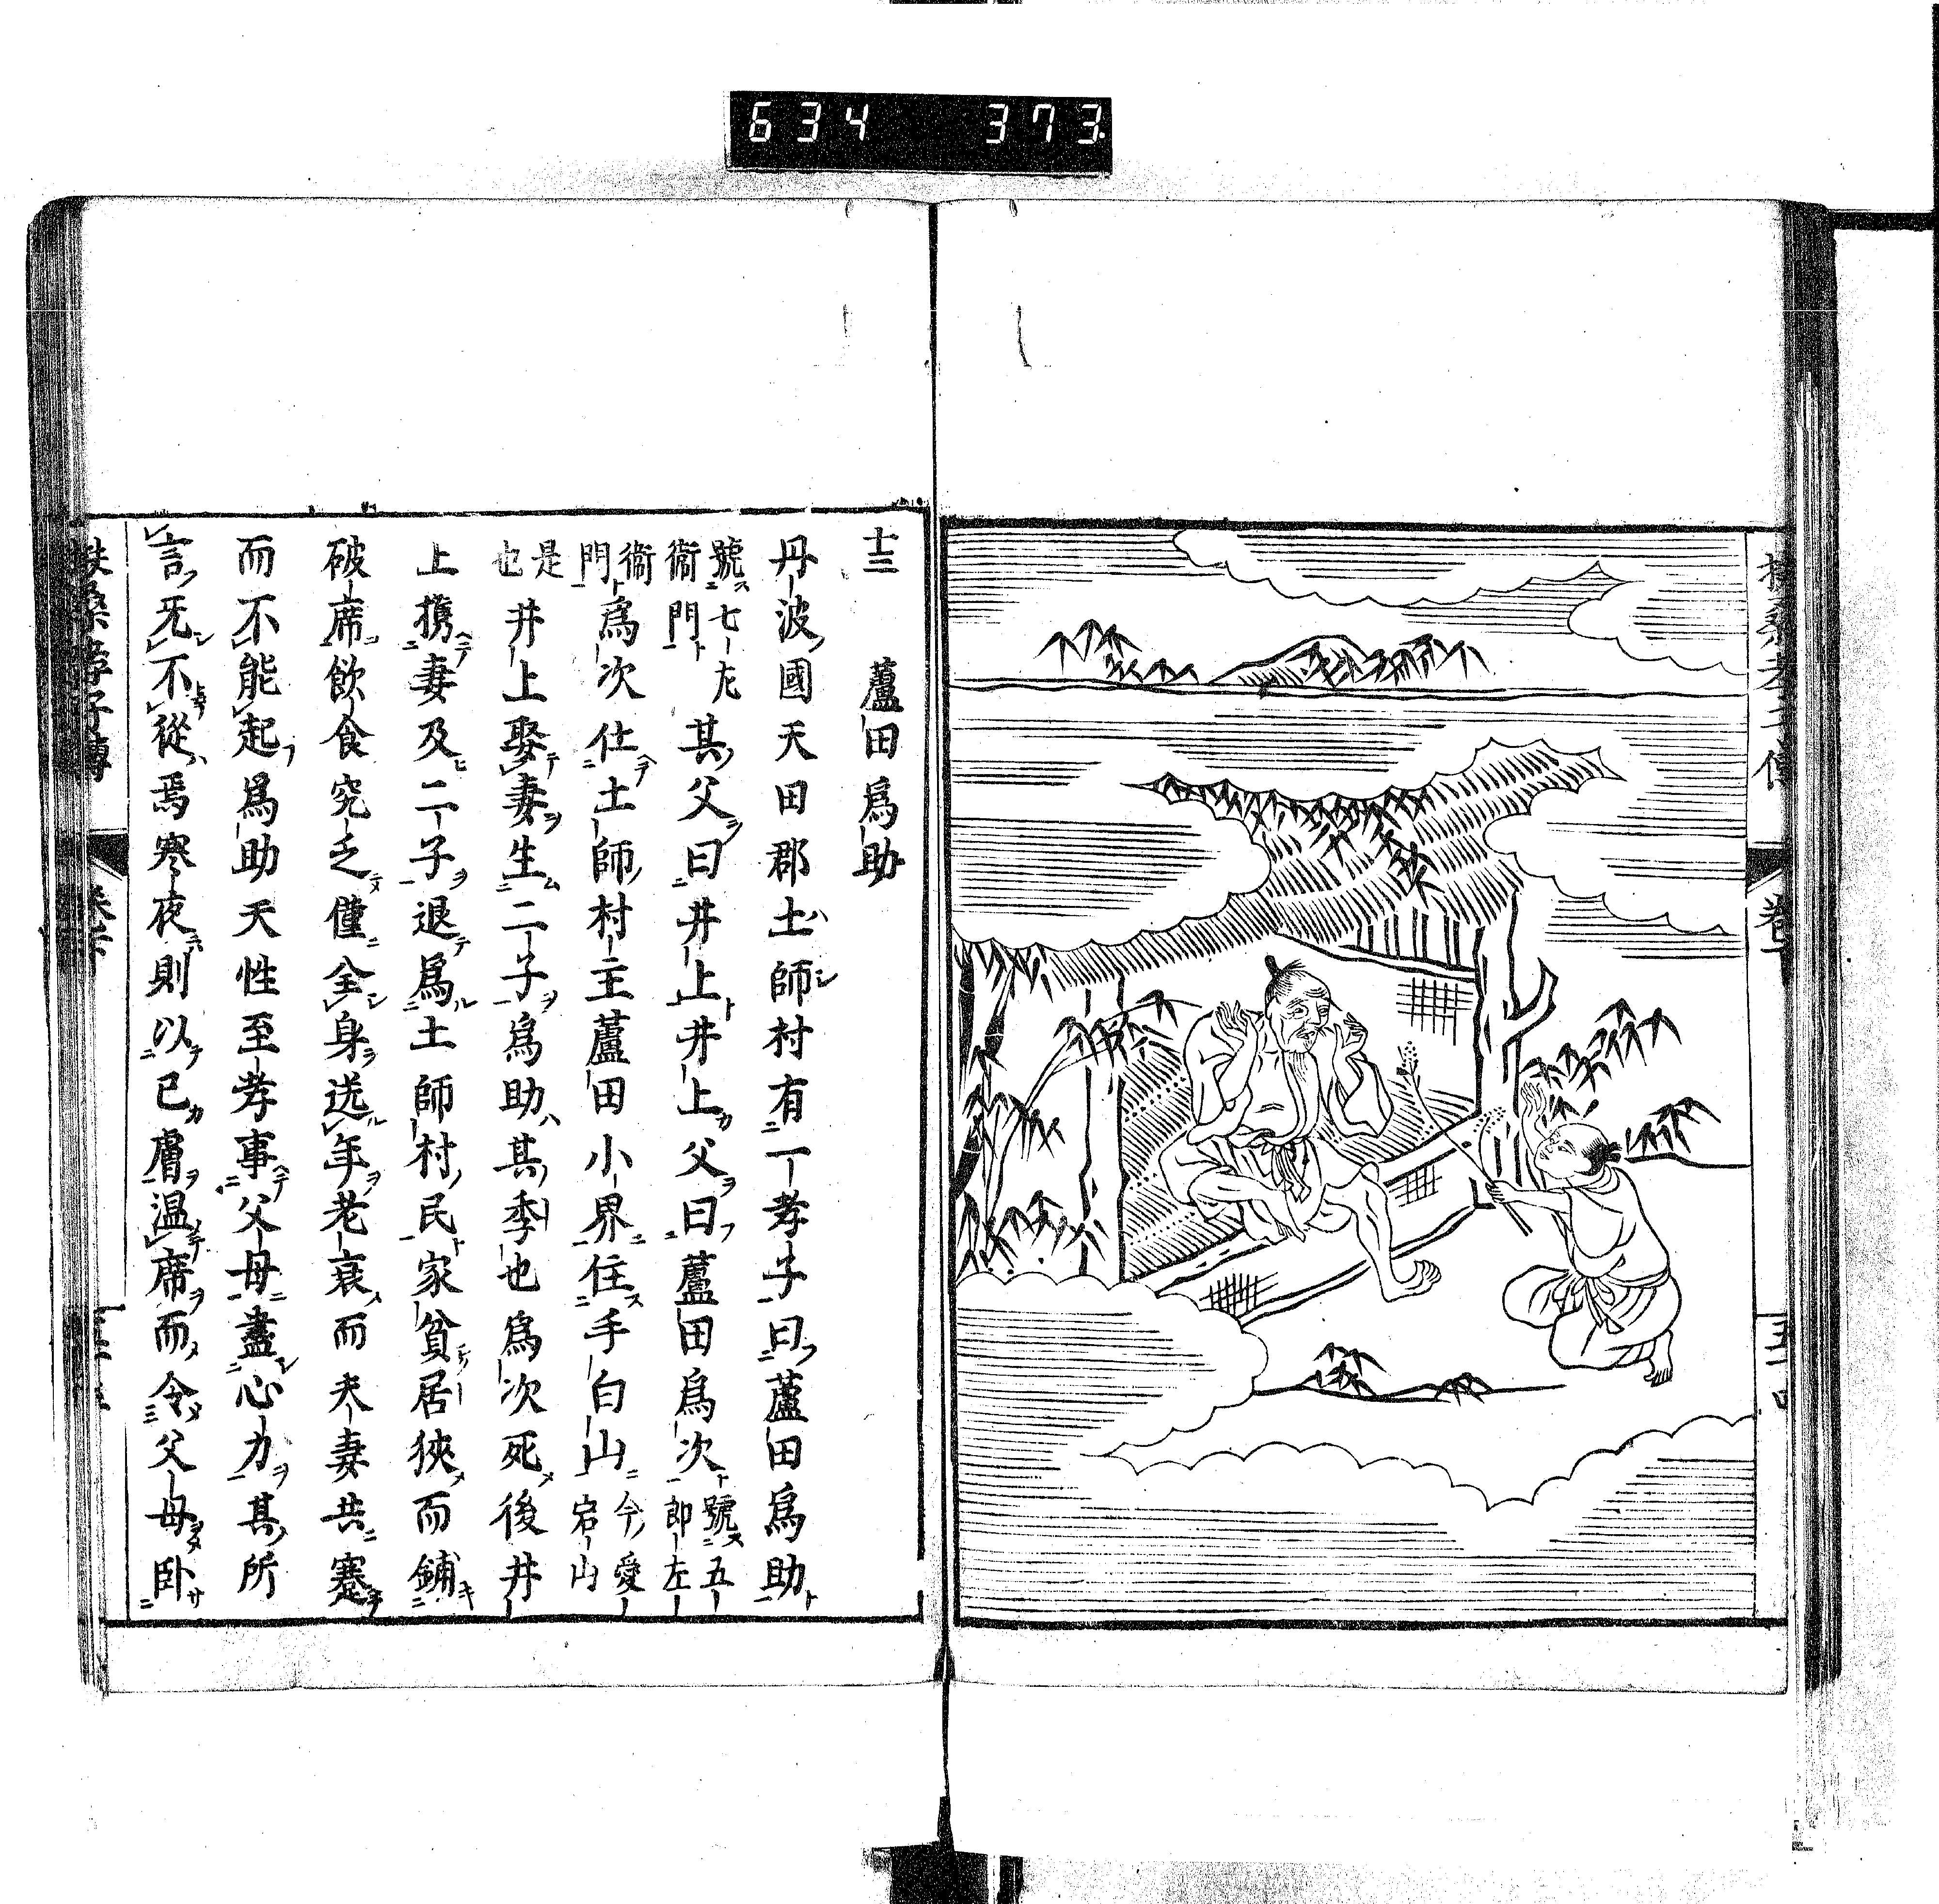 634 373
十三 蘆田爲助
丹波國天田郡土師村有一孝子曰蘆田爲助
號七左衞門其父曰井上井上父曰蘆田爲次號五郎左
衞門爲次仕土師村主蘆田小界住手白山今愛宕山
是也井上娶妻生二子爲助其季也爲次死後井
上携妻及二子退爲土師村民家貧居狹而鋪
破席飲食究乏僅全身送年老衰而夫妻共蹇
而不能起爲助天性至孝事父母盡心力其所
言无不從焉寒夜則以己膚温席而令父母臥
扶桑孝子傳